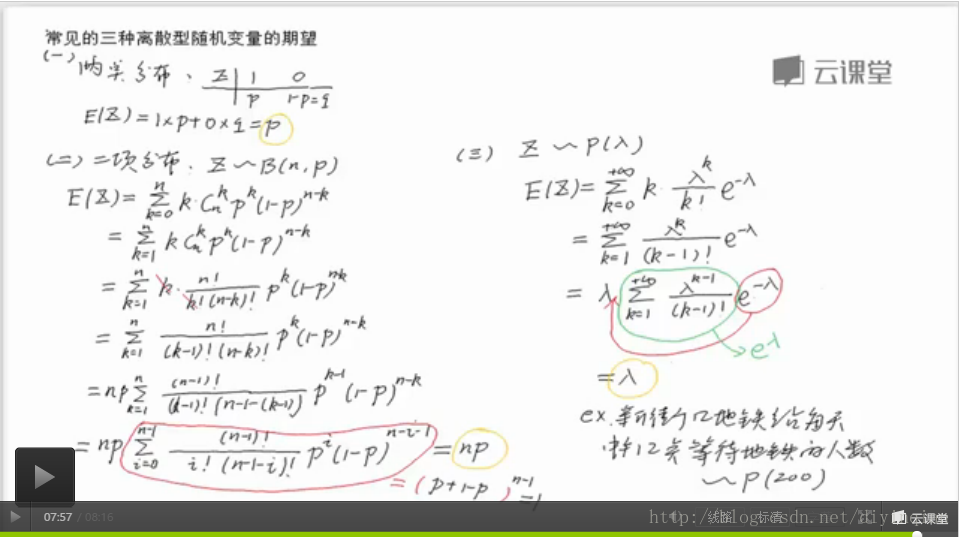 常见的三种离散型随机变量的期望
云课堂
(一) 两类分布. X | 1 0
p 1-p=q
E(X)=1×p+0×q=p
(二) 二项分布. X~B(n,p)
E(X)=∑_{k=0}^{n} k·C_n^k p^k (1-p)^{n-k}
=∑_{k=1}^{n} k C_n^k p^k (1-p)^{n-k}
=∑_{k=1}^{n} k·n!/(k!(n-k)!) p^k (1-p)^{n-k}
=∑_{k=1}^{n} n!/((k-1)!(n-k)!) p^k (1-p)^{n-k}
=np∑_{k=1}^{n} (n-1)!/((k-1)!(n-1-(k-1)) p^{k-1} (1-p)^{n-k}
=np∑_{i=0}^{n-1} (n-1)!/(i!(n-1-i)!) p^i (1-p)^{n-i-1} =np
=(p+1-p)^{n-1}=1
(三) X~P(λ)
E(X)=∑_{k=0}^{+∞} k·λ^k/k! e^{-λ}
=∑_{k=1}^{+∞} λ^k/(k-1)! e^{-λ}
=λ∑_{k=1}^{+∞} λ^{k-1}/(k-1)! e^{-λ}
e^λ
=λ
ex. 新街口地铁站每天
等待地铁的人数
~P(200)
07:57 / 08:16
线路 标清
云课堂